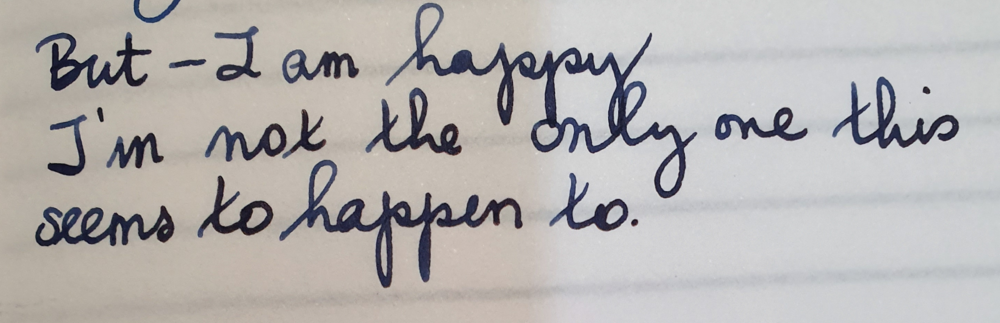 But - I am happy
I'm not the only one this
seems to happen to.